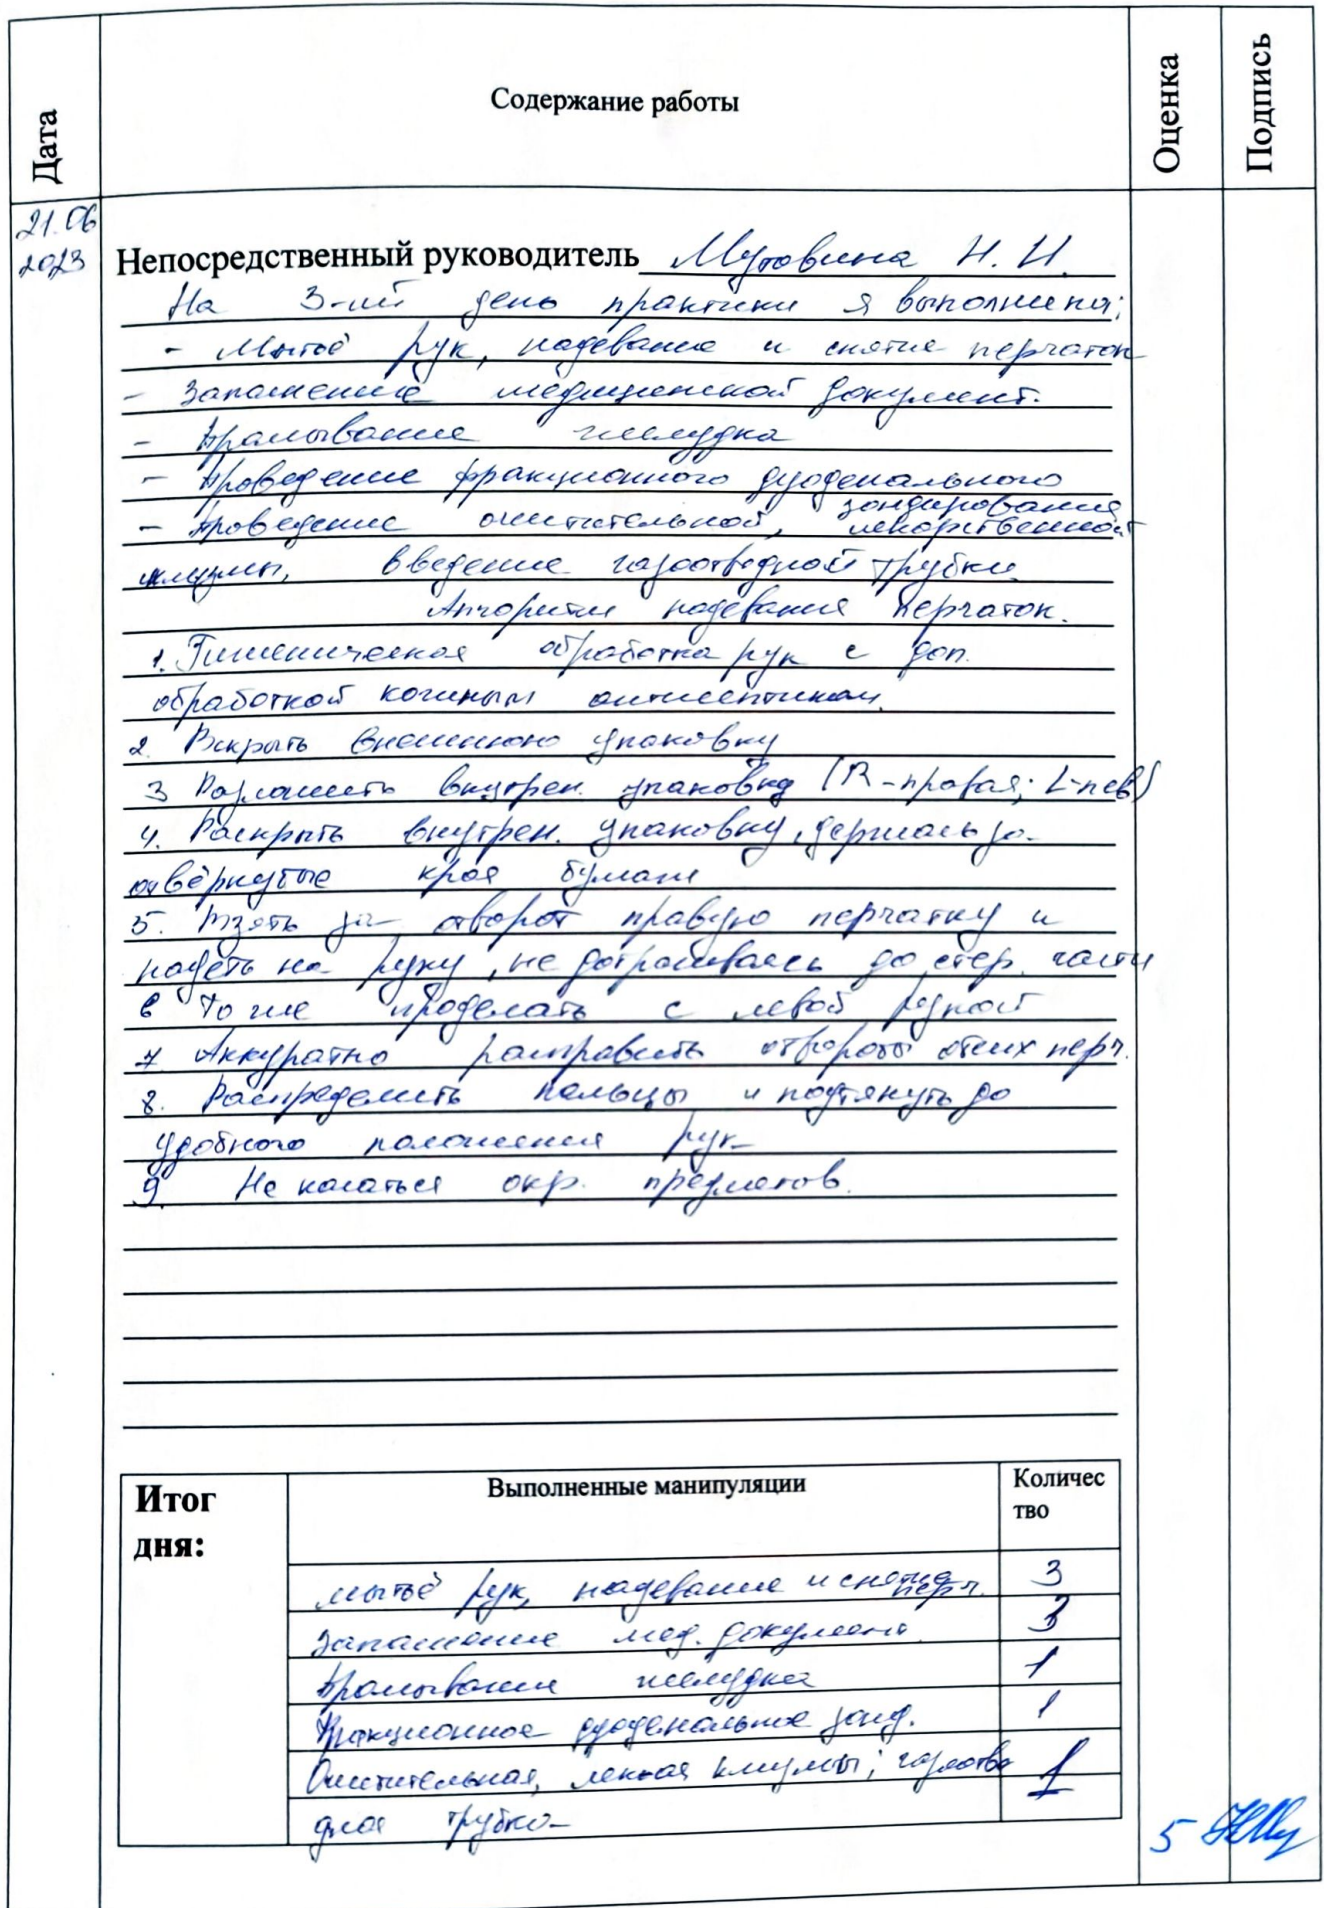 Дата
Содержание работы
Оценка
Подпись
21.06
2023
Непосредственный руководитель Мутовина Н. Н.
На 3-ий день практики я выполнила:
- Мытьё рук, надевание и снятие перчаток
- Заполнение медицинской документ.
- Промывание желудка
- Проведение фракционного дуоденального
зондирования
- Проведение очистительной, лекарственной
клизмы, введение газоотводной трубки.
Алгоритм надевания перчаток.
1. Гигиеническая обработка рук с доп.
обработкой кожным антисептиком.
2. Вскрыть внешнюю упаковку
3 Разложить внутрен. упаковку (R-правая; L-лев)
4. Раскрыть внутрен. упаковку, держась за
отвёрнутые края бумаги
5. Взять за отворот правую перчатку и
надеть на руку, не дотрагиваясь до стер. части
6 То же проделать с левой рукой
7 Аккуратно расправить отвороты обеих перч.
8. Распределить пальцы и подтянуть до
удобного положения рук
9. Не касаться окр. предметов.
Итог
дня:
Выполненные манипуляции
Количес
тво
мытьё рук, надевание и снятие перч. 3
Заполнение мед. документ. 3
Промывание желудка 1
Фракционное дуоденальное зонд. 1
Очистительная, лек-ая клизмы; газоотво 1
дная трубка
5